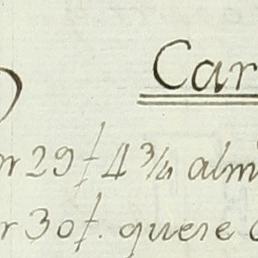 Car
29 f 4 3/4 alm
r 30 f. quese